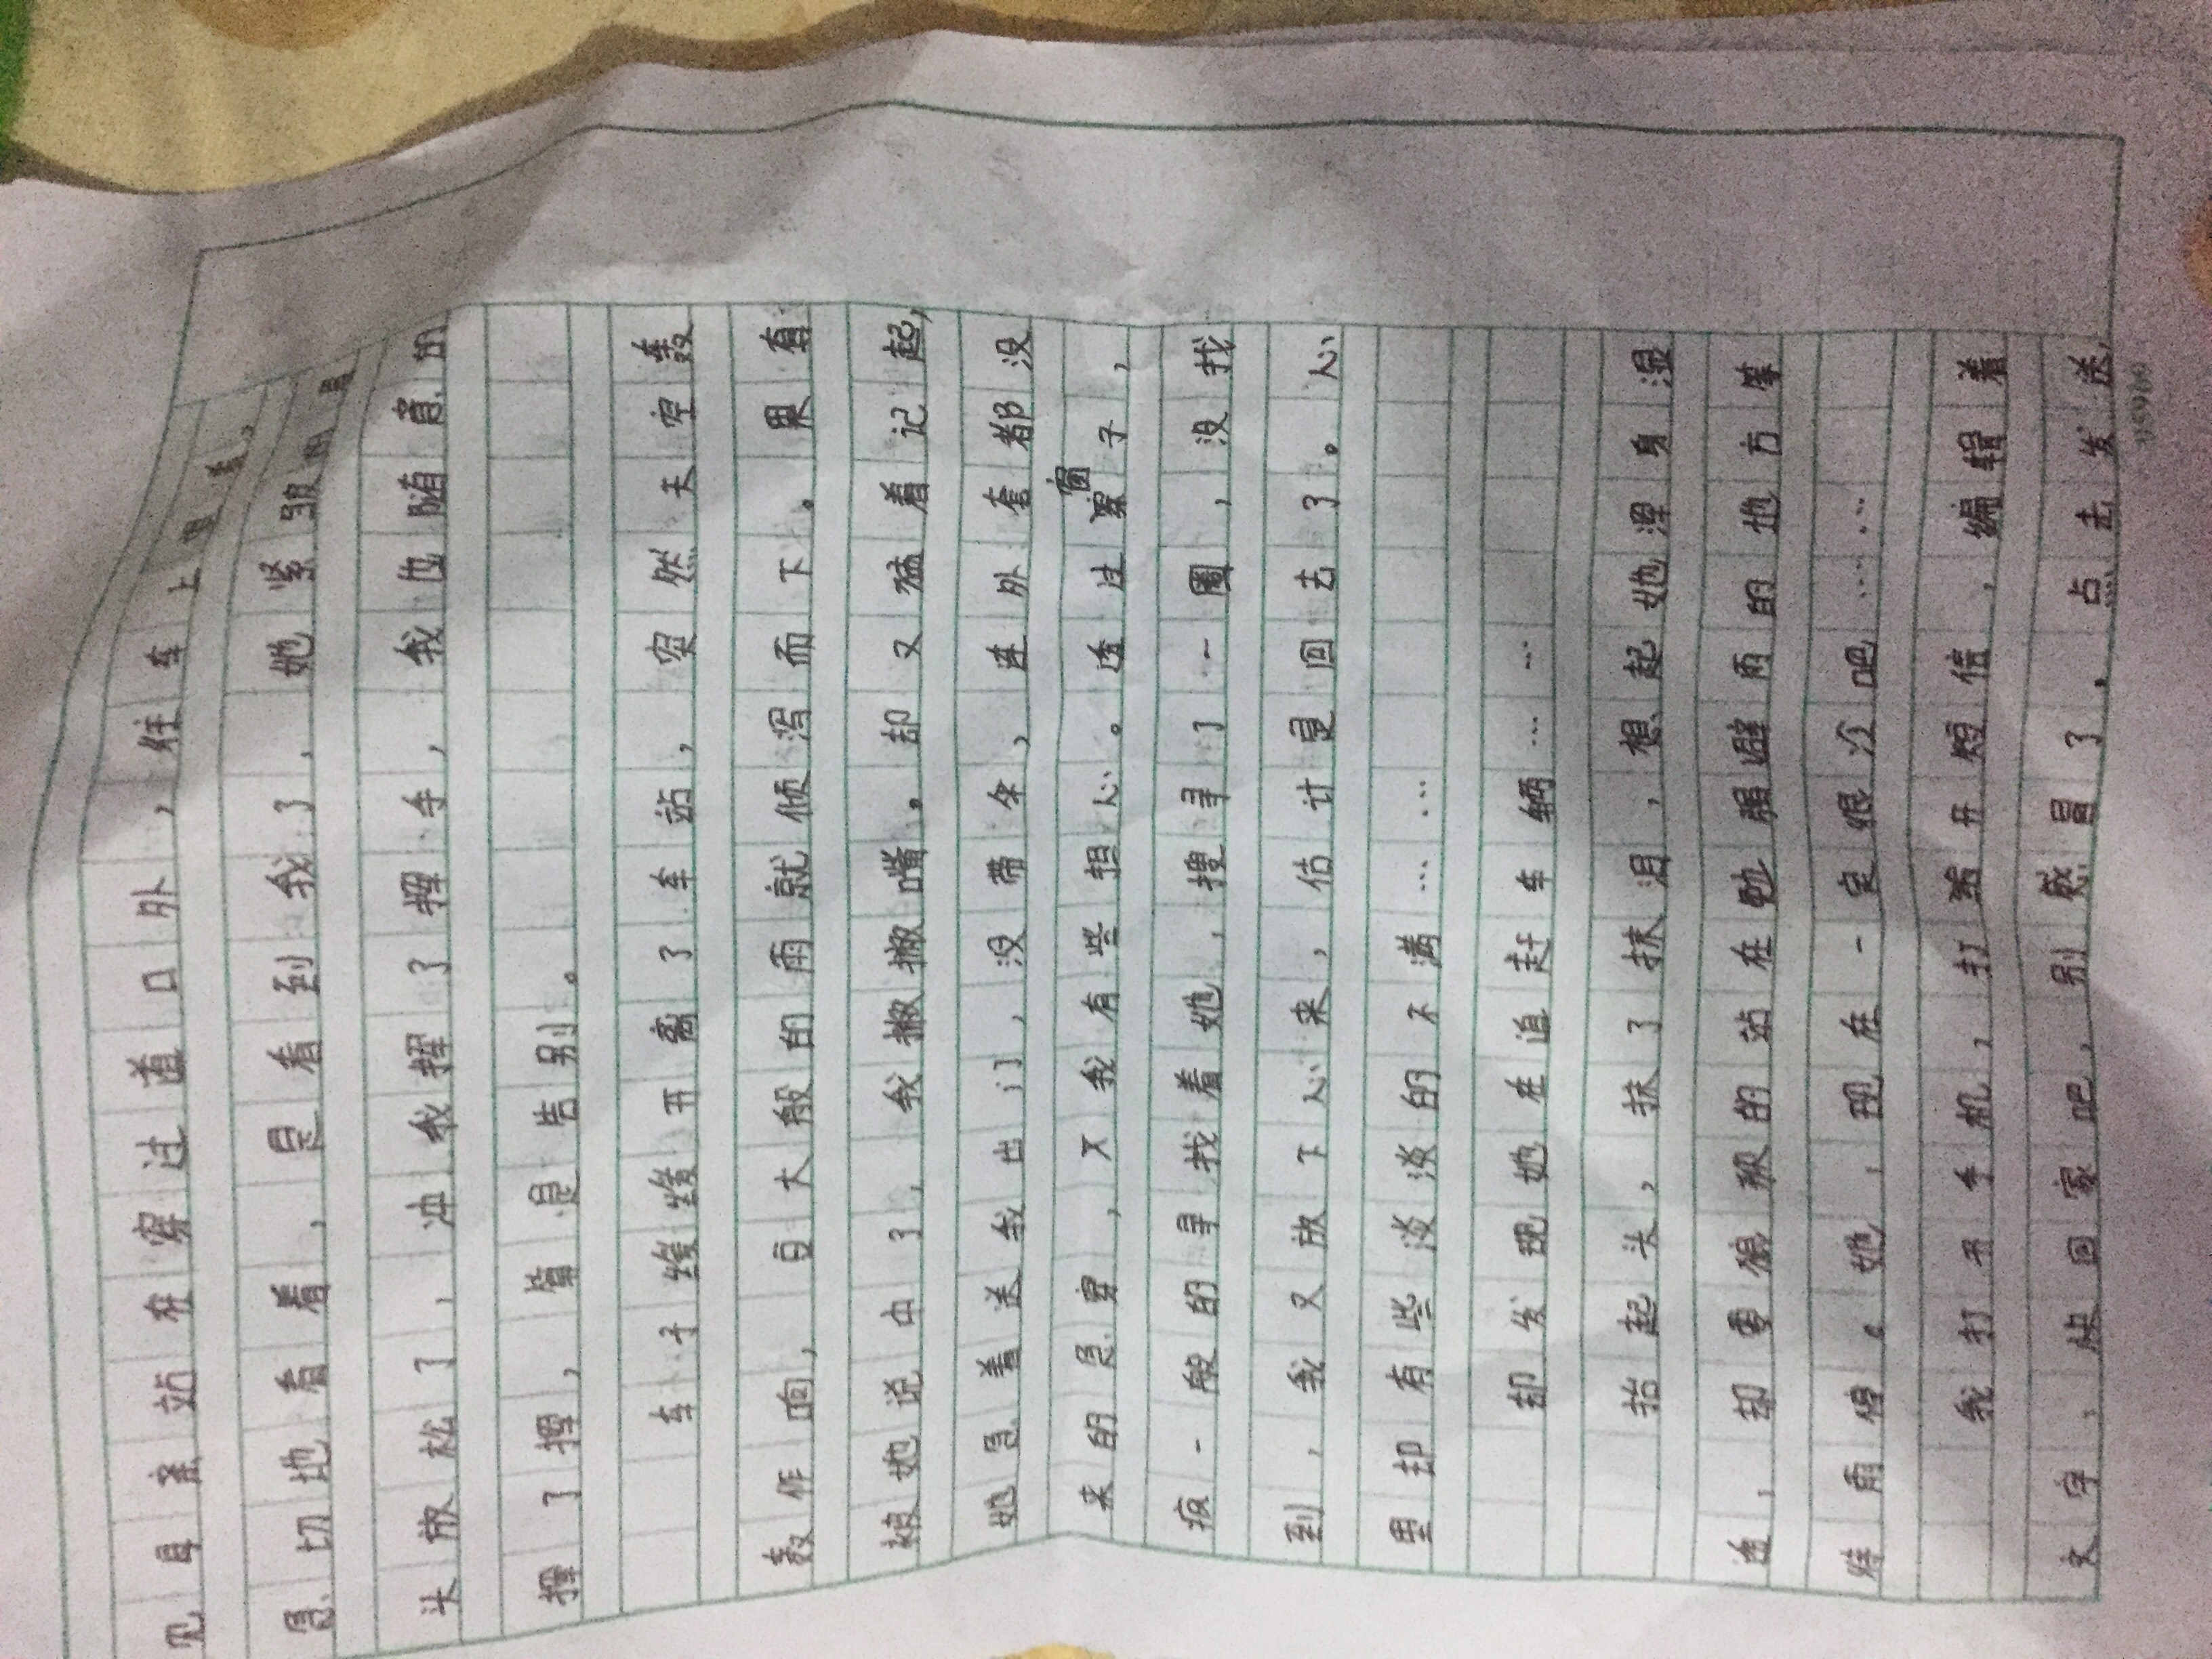 见身站在穿过道口外，往车上
急切地看着，是看到我了，她紧绷的眉
头放松了，冲我挥了挥手，我也随意的
挥了挥，算是告别。
车子缓缓开离了车站，突然天空轰
轰作响，豆大般的雨就倾泻而下。果真
被她说中了，我撇撇嘴。却又猛着记起，
她急着送我出门，没带伞，连外套都没
来的急穿，又我有些担心。透过窗子，
疯一般的寻找着她，搜寻了一圈，没找
到，我又放下心来，估计是回去了。心
里却有些淡淡的不满……
却发现她在追赶车辆……
抬起头，抹了抹泪，想起她浑身湿
透，却要狼狈的站在勉强避雨的地方等
候雨停。她，现在一定很冷吧……
我打开手机，打开短信，编辑着
文字，快回家吧，别感冒了，点击发送，